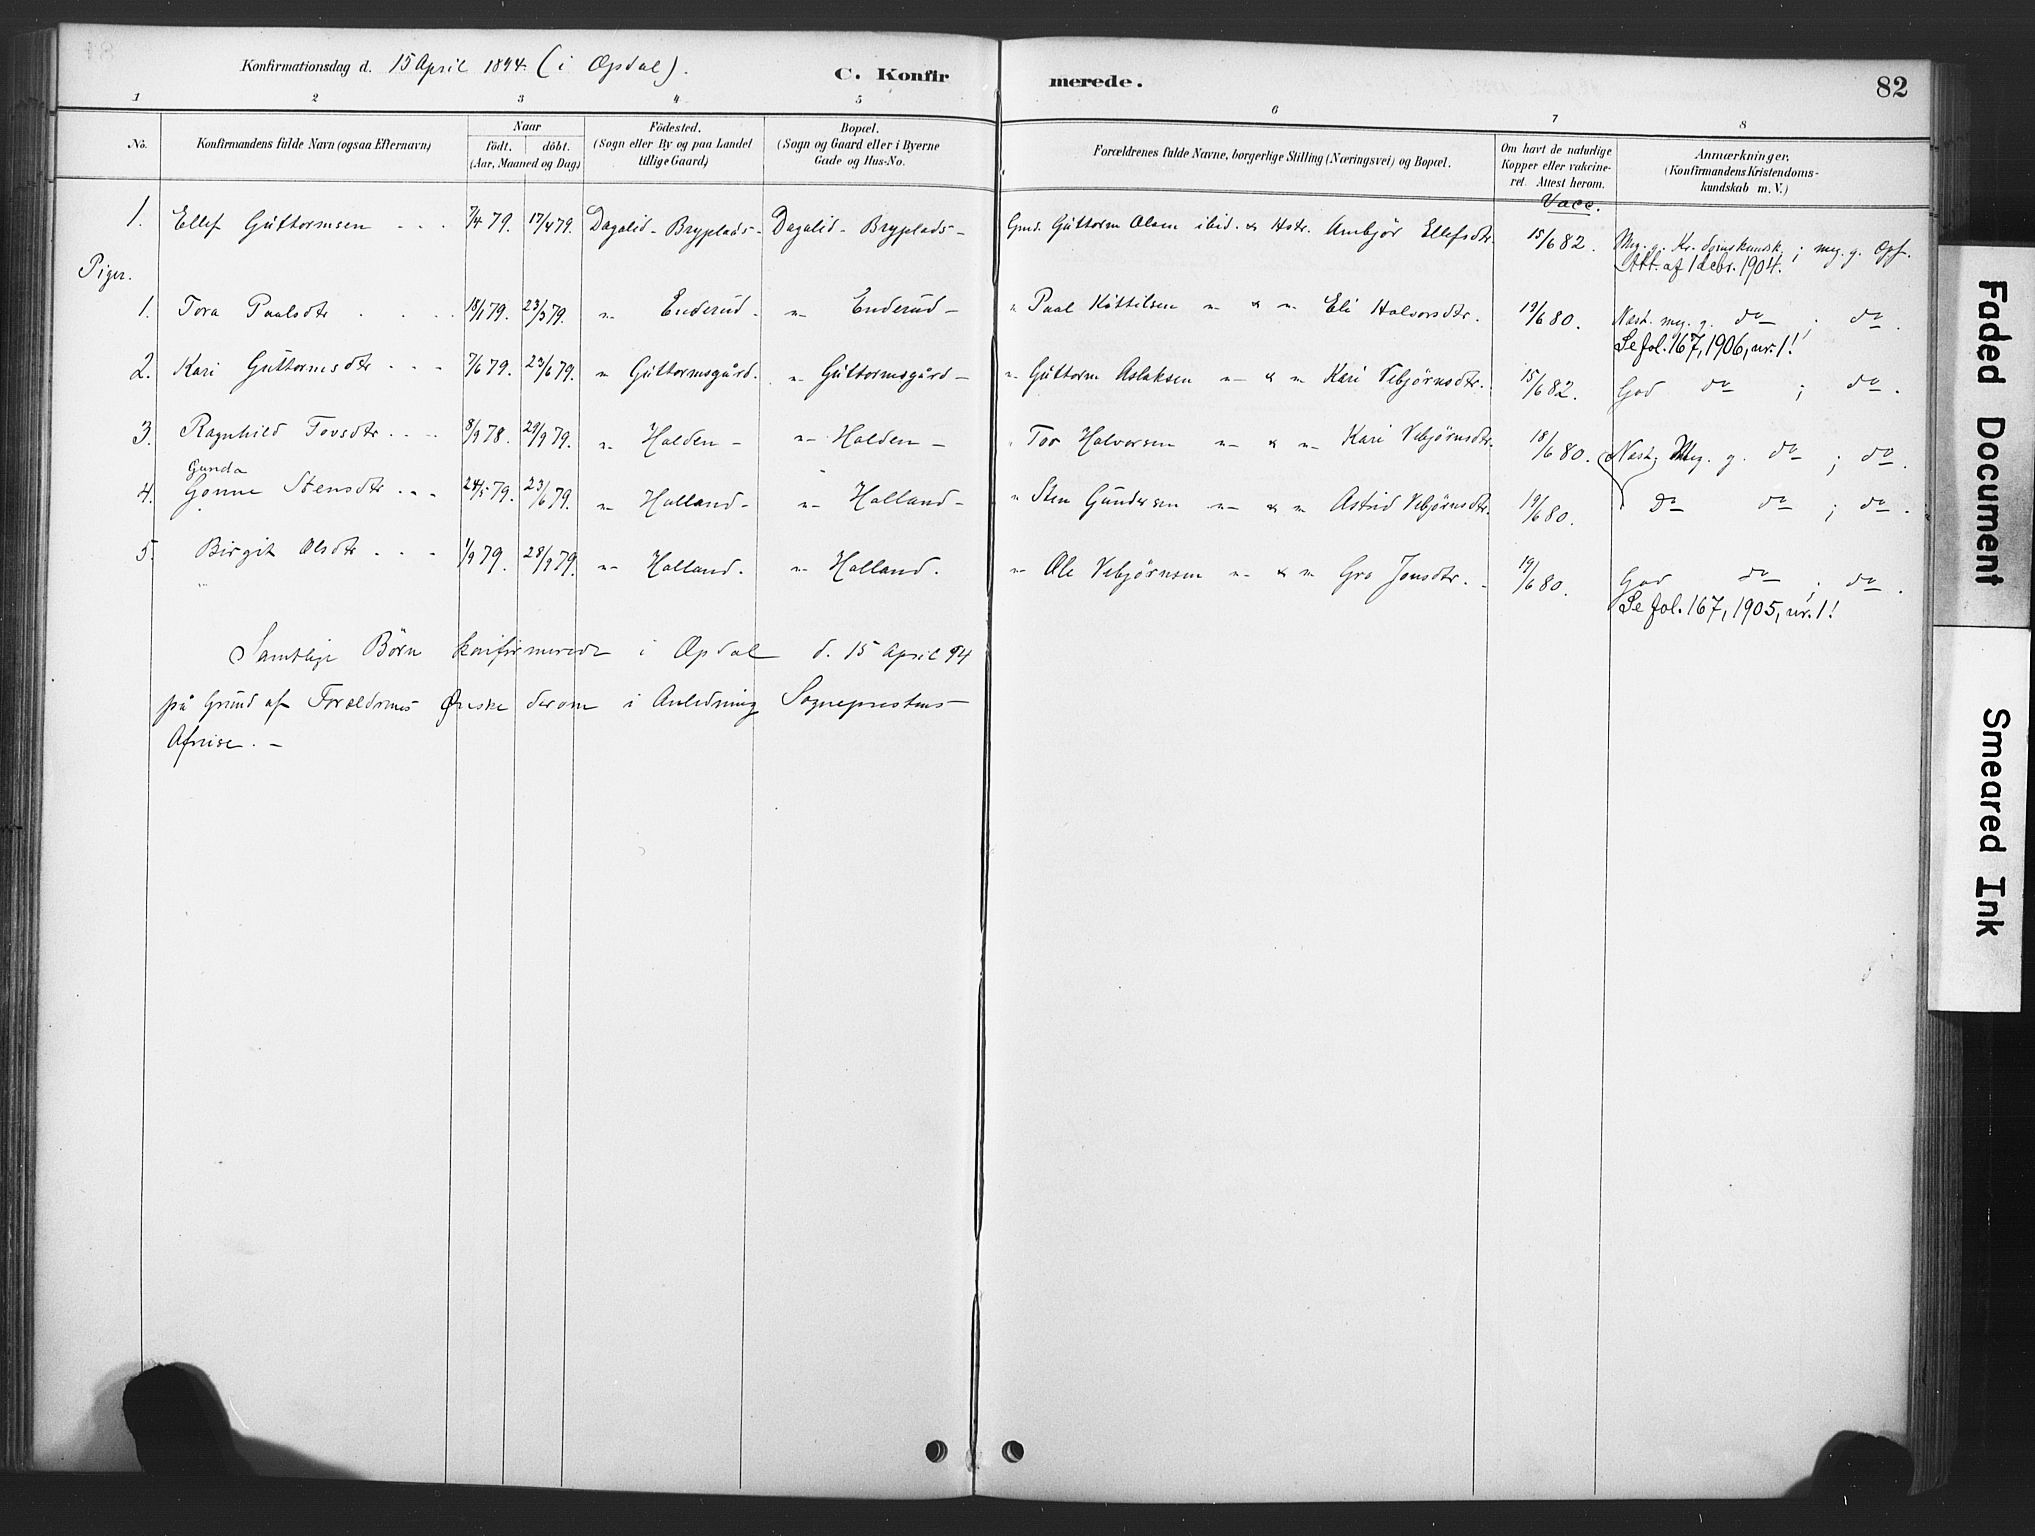 Konfirmationsdag d. 15 April 1894. (i Opdal).
C. Konfirmerede.
82
1 2 3 4 5 6 7 8
No.
Konfirmandens fulde Navn (ogsaa Efternavn)
Naar
födt. döbt.
(Aar, Maaned og Dag)
Födested.
(Sogn eller By og paa Landet
tillige Gaard)
Bopæl.
(Sogn og Gaard eller i Byerne
Gade og Hus-No.
Forældrenes fulde Navne, borgerlige Stilling (Næringsvei) og Bopæl.
Om havt de naturlige
Kopper eller vakcine-
ret. Attest herom.
Vacc.
Anmærkninger.
(Konfirmandens Kristendoms-
kundskab m. V.)
1. Ellef Guttormsen 7/4 79. 17/4 79. Dagalid - Bryplads - Dagalid - Bryplads - Gmd. Guttorm Olsen ibid. & Hstr. Ambjør Ellefsdtr. 15/6 82. Mg. g. Kr.domskundsk.; meg. g. Opf.
Att. af 1 debr. 1904.
Piger.
1. Tora Paalsdtr 18/1 79. 23/3 79. " Enderud - " Enderud - " Paal Kittilsen " & " Eli Halvorsdtr. 19/6 80. Næst. meg. g. do ; do.
Se fol. 167, 1906, nr. 1!
2. Kari Guttormsdtr 7/6 79. 23/6 79. " Guttormsgård. " Guttormsgård - " Guttorm Aslaksen " & " Kari Vebjørnsdtr. 15/6 82. God do ; do.
3. Ragnhild Tovsdtr 8/9 78. 29/9 79. " Holden - " Holden - " Tov Halvorsen " & " Kari Vebjørnsdtr. 18/6 80. Næst. Meg. g. do ; do.
Gunda
4. Gonne Stensdtr 24/5 79. 23/6 79. " Holland - " Holland - " Sten Gundersen " & " Astrid Vebjørnsdtr. 19/6 80. Do do ; do.
5. Birgit Olsdtr 1/9 79. 28/9 79. " Holland. " Holland. " Ole Vebjørnsen " & " Gro Jonsdtr. 19/6 80. God do ; do.
Se fol. 167, 1905, nr. 1!
Samtlige Børn konfirmerede i Opdal d. 15 April 94
på Grund af Forældrenes Ønske derom i Anledning Sogneprestens
Afreise. -
Faded Document
Smeared Ink